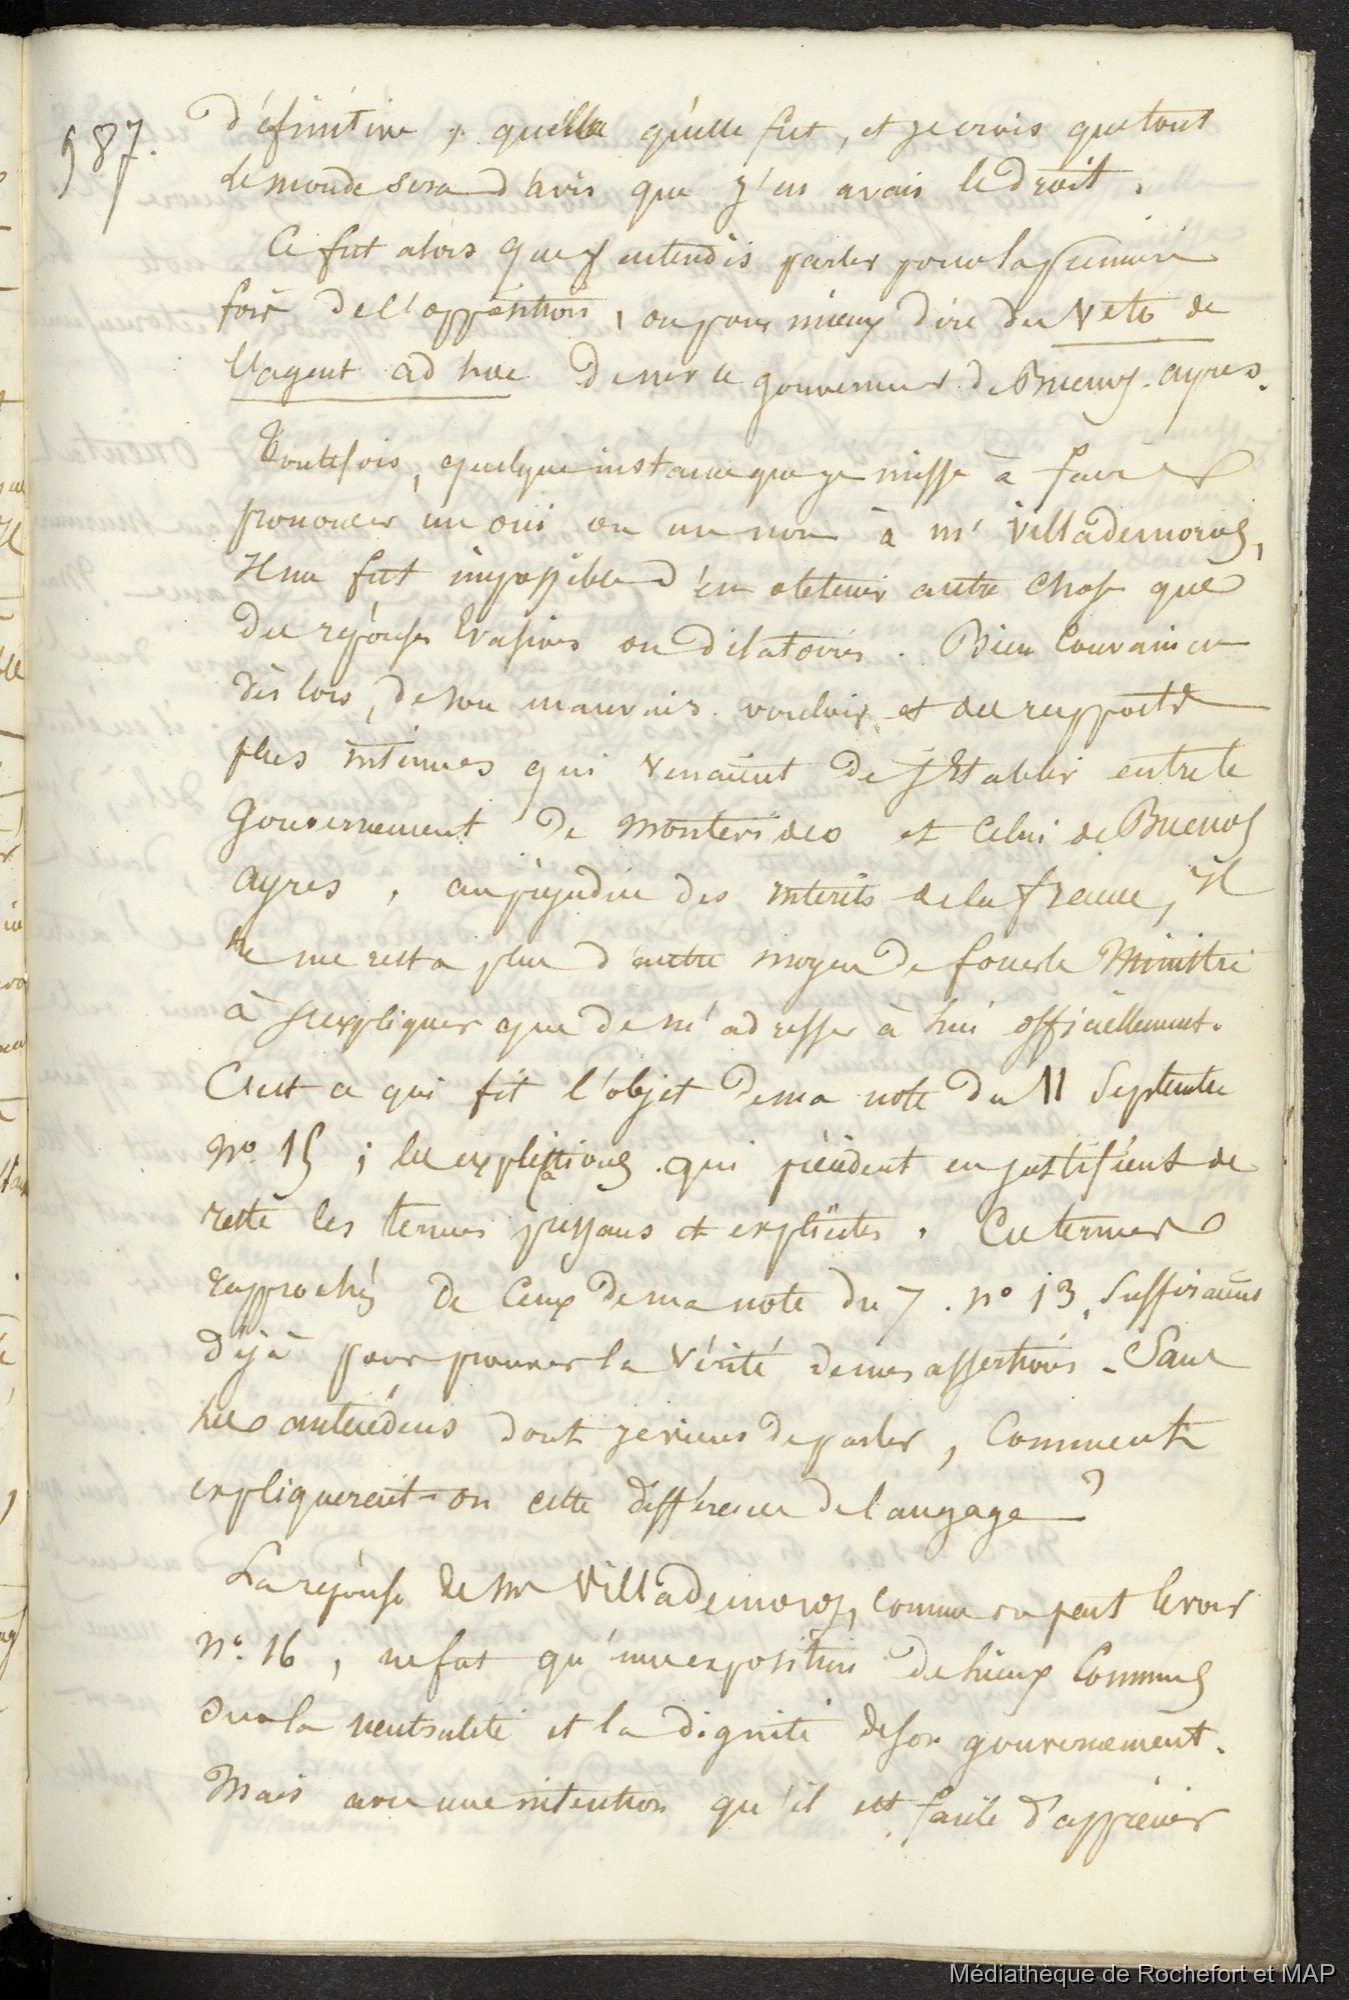 987.
définitive, quelle qu'elle fut, et je crois que tout
le monde sera d'avis que j'en avais le droit.
Ce fut alors que j'entendis parler pour la première
fois de l'opposition, ou pour mieux dire du Veto de
l'agent ad hoc de Mr le gouverneur de Buenos-ayres.
Toutefois, quelque instance que je misse à faire
prononcer un oui ou un non à mr Villademoros,
Il me fut impossible d'en obtenir autre chose que
des réponses Evasives ou dilatoires. Bien Convaincu
dès lors, de son mauvais vouloir et des rapports
plus intimes qui venaient de s'Etablir entre le
Gouvernement de Montevideo et Celui de Buenos
ayres, au préjudice des intérêts de la france, Il
ne me resta plus d'autre moyen de forcer le Ministre
à s'expliquer que de m'adresser à lui officiellement.
C'est ce qui fit l'objet de ma note du 11 Septembre
No. 15; les explications qui précèdent en justifient de
reste les termes pressans et explicites. Ces termes
rapprochés de Ceux de ma note du 7. no 13, Suffiraient
déjà pour prouver la Vérité de mes assertions. Sans
les antécédens dont je viens de parler, Comment
expliquerait-on cette différence de langage?
La réponse de Mr Villademoros, comme on peut le voir
No. 16, ne fut qu'une exposition de lieux Communs
Sur la neutralité et la dignité de son gouvernement.
Mais avec une intention qu'il est facile d'apprécier
Médiathèque de Rochefort et MAP